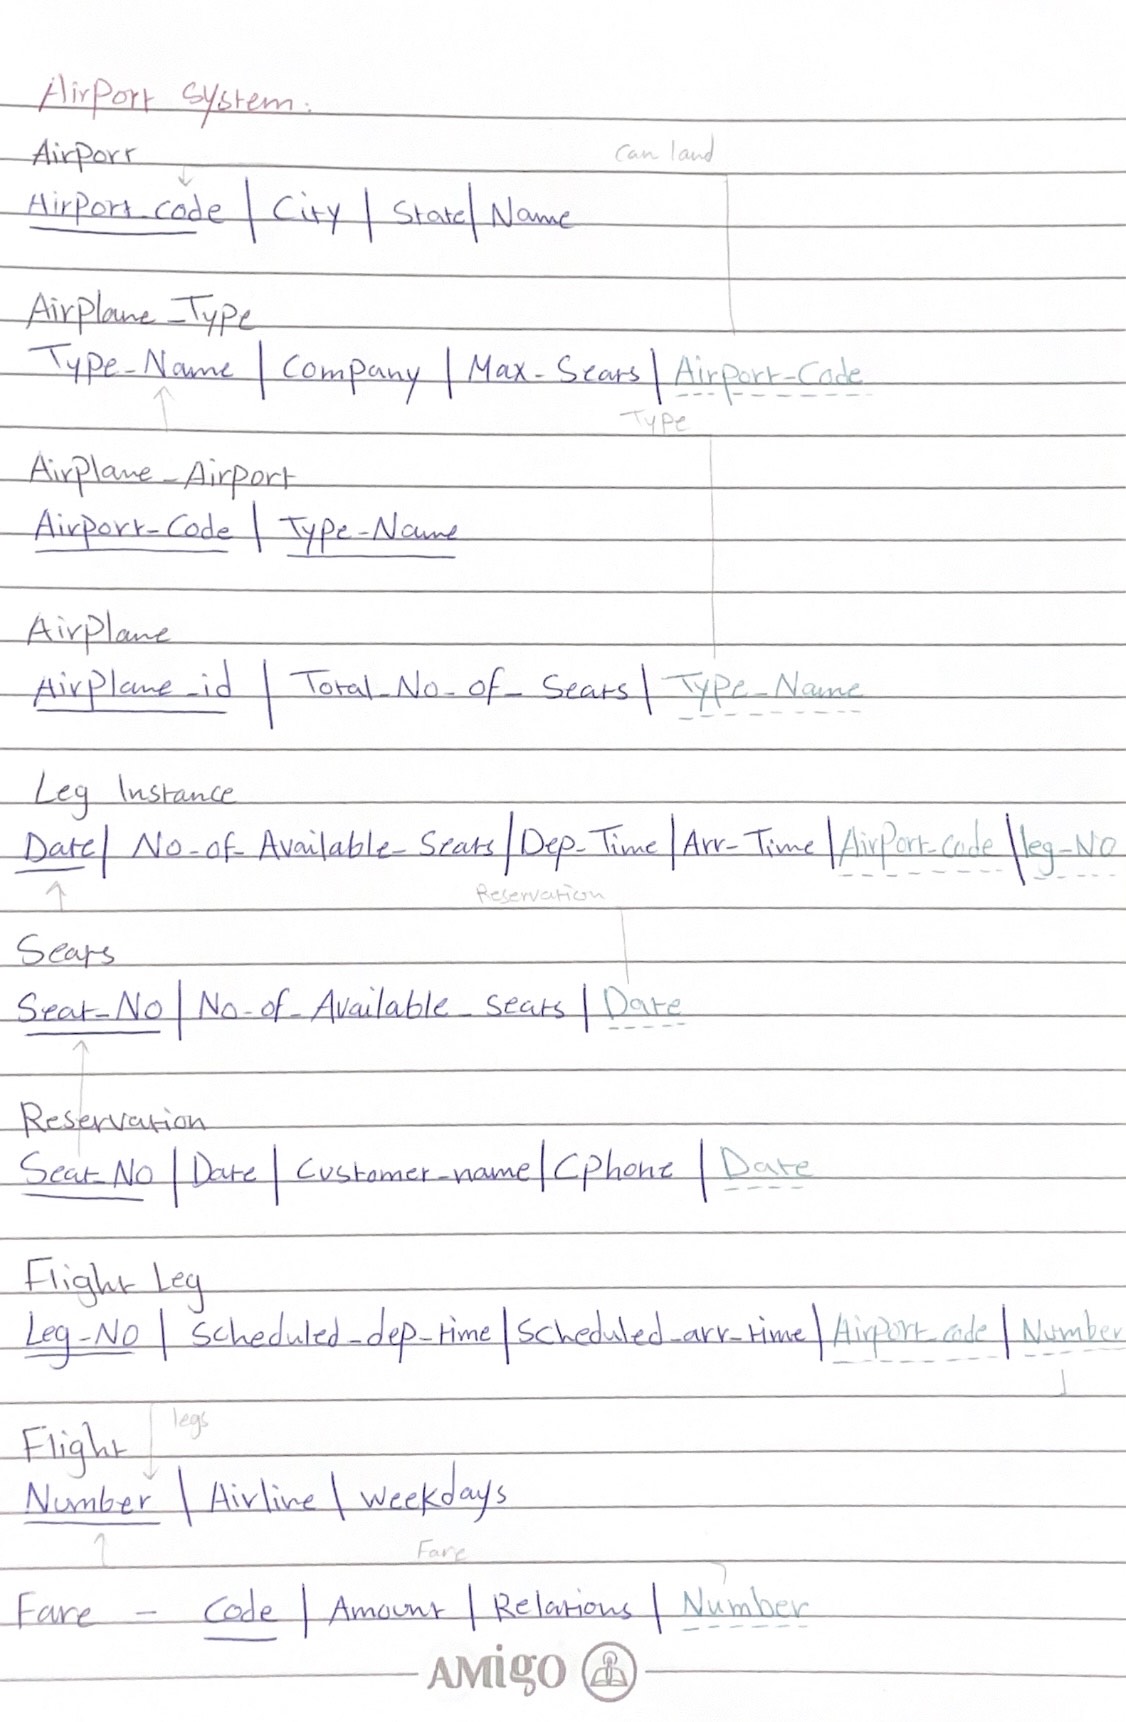 Airport System:
Airport
Can land
Airport_code | City | State | Name
Airplane_Type
Type_Name | Company | Max_Seats | Airport_Code
Type
Airplane_Airport
Airport_Code | Type_Name
Airplane
Airplane_id | Total_No_of_Seats | Type_Name
Leg Instance
Date | No_of_Available_Seats | Dep_Time | Arr_Time | Airport_code | leg_No
Reservation
Seats
Seat_No | No_of_Available_seats | Date
Reservation
Seat_No | Date | Customer_name | Cphone | Date
Flight Leg
Leg_No | Scheduled_dep_time | Scheduled_arr_time | Airport_code | Number
legs
Flight
Number | Airline | weekdays
Fare
Fare - Code | Amount | Relations | Number
AMigo